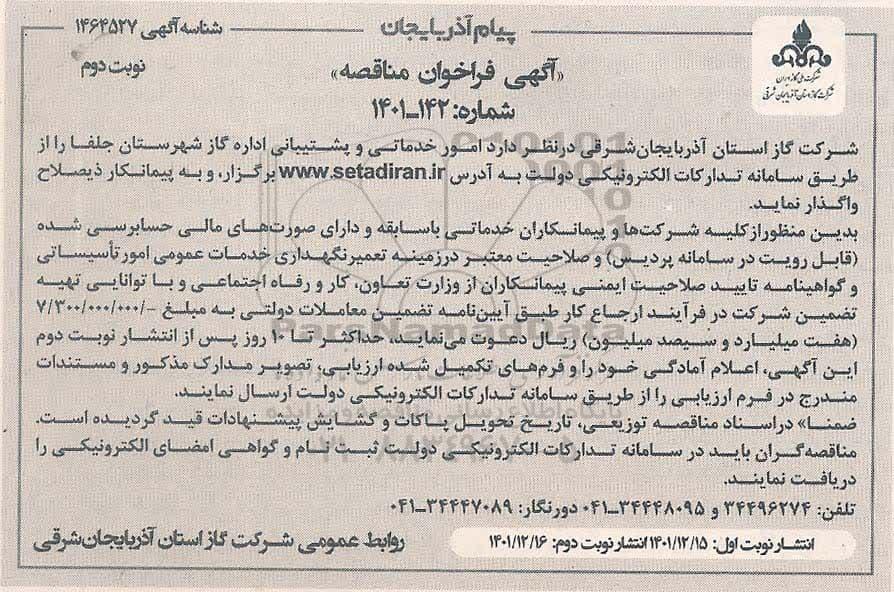 پیام آذربایجان
شناسه آگهی ۱۴۶۴۵۲۷
شرکت ملی گاز ایران
شرکت گاز استان آذربایجان شرقی
«آگهی فراخوان مناقصه»
نوبت دوم
شماره: ۱۴۲-۱۴۰۱
شرکت گاز استان آذربایجان‌شرقی درنظر دارد امور خدماتی و پشتیبانی اداره گاز شهرستان جلفا را از
طریق سامانه تدارکات الکترونیکی دولت به آدرس www.setadiran.ir برگزار، و به پیمانکار ذیصلاح
واگذار نماید.
بدین منظور از کلیه شرکت‌ها و پیمانکاران خدماتی باسابقه و دارای صورت‌های مالی حسابرسی شده
(قابل رویت در سامانه پردیس) و صلاحیت معتبر درزمینه تعمیرنگهداری خدمات عمومی امور تأسیساتی
و گواهینامه تایید صلاحیت ایمنی پیمانکاران از وزارت تعاون، کار و رفاه اجتماعی و با توانایی تهیه
تضمین شرکت در فرآیند ارجاع کار طبق آیین‌نامه تضمین معاملات دولتی به مبلغ -/۷/۳۰۰/۰۰۰/۰۰۰
(هفت میلیارد و سیصد میلیون) ریال دعوت می‌نماید، حداکثر تا ۱۰ روز پس از انتشار نوبت دوم
این آگهی، اعلام آمادگی خود را و فرم‌های تکمیل شده ارزیابی، تصویر مدارک مذکور و مستندات
مندرج در فرم ارزیابی را از طریق سامانه تدارکات الکترونیکی دولت ارسال نمایند.
ضمنا» دراسناد مناقصه توزیعی، تاریخ تحویل پاکات و گشایش پیشنهادات قید گردیده است.
مناقصه‌گران باید در سامانه تدارکات الکترونیکی دولت ثبت نام و گواهی امضای الکترونیکی را
دریافت نمایند.
تلفن: ۳۴۴۹۶۲۷۴ و ۳۴۴۴۸۰۹۵-۰۴۱ دورنگار: ۳۴۴۴۷۰۸۹-۰۴۱
انتشار نوبت اول: ۱۴۰۱/۱۲/۱۵ انتشار نوبت دوم: ۱۴۰۱/۱۲/۱۶
روابط عمومی شرکت گاز استان آذربایجان‌شرقی
ParsNamadData
پایگاه اطلاع رسانی مناقصه و مزایده